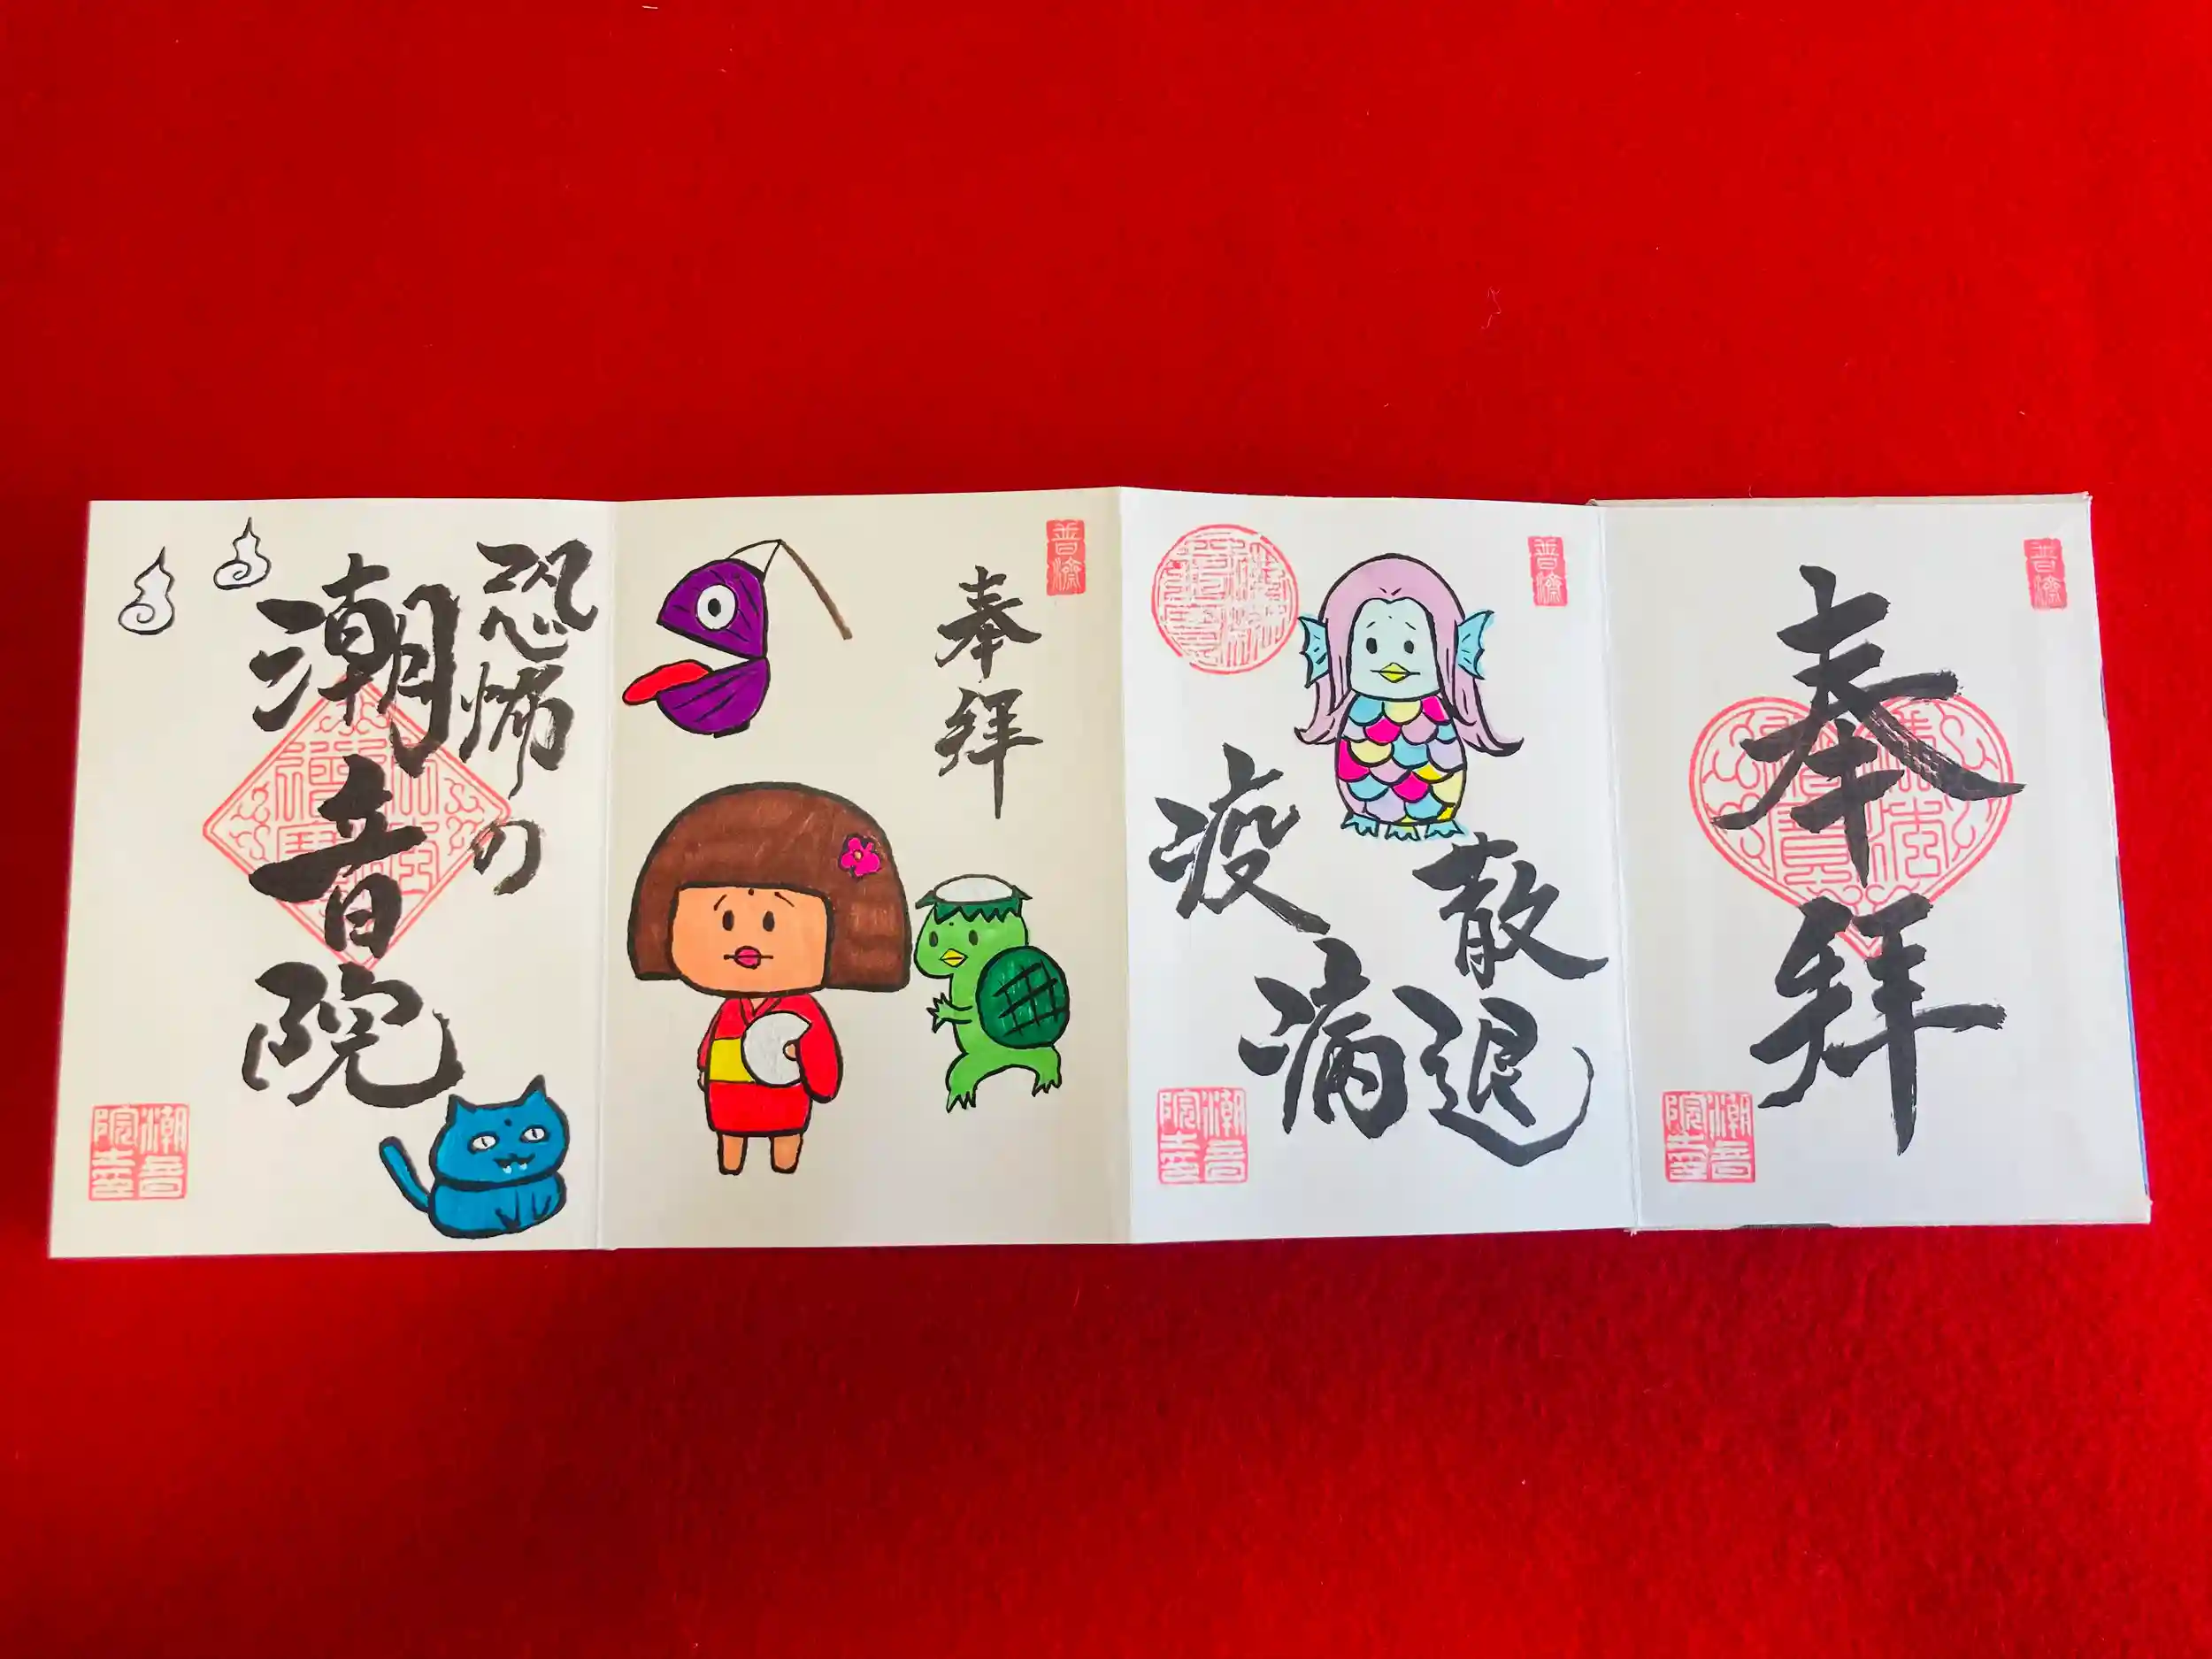 普済
奉拝
潮音
院主
普済
疫病
退散
潮音
院主
普済
奉拝
恐怖の
潮音院
潮音
院主